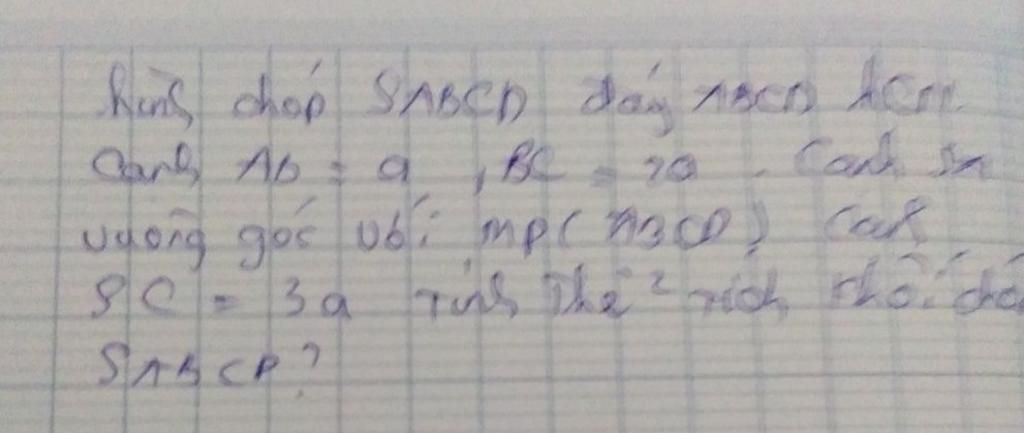 hình chóp SABCD đáy ABCD HCN.
Cạnh AB = a, BC = 2a. Cạnh SA
vuông góc với mp(ABCD) Cạnh
SC = 3a Tính Thể Tích khối chó
SABCD?